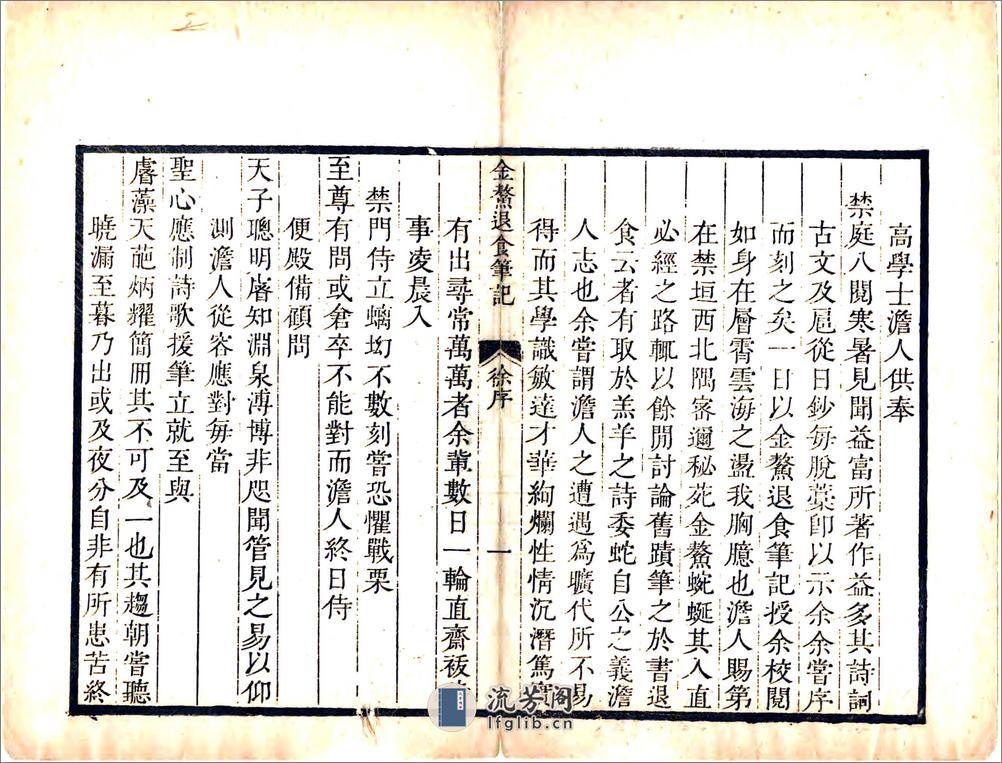 高學士澹人供奉
禁庭八閱寒暑見聞益富所著作益多其詩詞
古文及扈從日鈔每脫藁卽以示余余嘗序
而刻之矣一日以金鰲退食筆記授余校閱
如身在層霄雲海之盪我胸臆也澹人賜第
在禁垣西北隅密邇秘苑金鰲蜿蜒其入直
必經之路輒以餘閒討論舊蹟筆之於書退
食云者有取於羔羊之詩委蛇自公之義澹
人志也余嘗謂澹人之遭遇爲曠代所不易
得而其學識敏達才華絢爛性情沉潛篤實
金鰲退食筆記 徐序 一
有出尋常萬萬者余輩數日一輪直齋祓
事凌晨入
禁門侍立螭㘭不數刻嘗恐懼戰栗
至尊有問或倉卒不能對而澹人終日侍
便殿備顧問
天子聰明睿知淵泉溥博非咫聞管見之易以仰
測澹人從容應對每當
聖心應制詩歌援筆立就至與
睿藻天葩炳耀簡冊其不可及一也其趨朝嘗聽
曉漏至暮乃出或及夜分自非有所患苦終
流芳阁
lfglib.cn